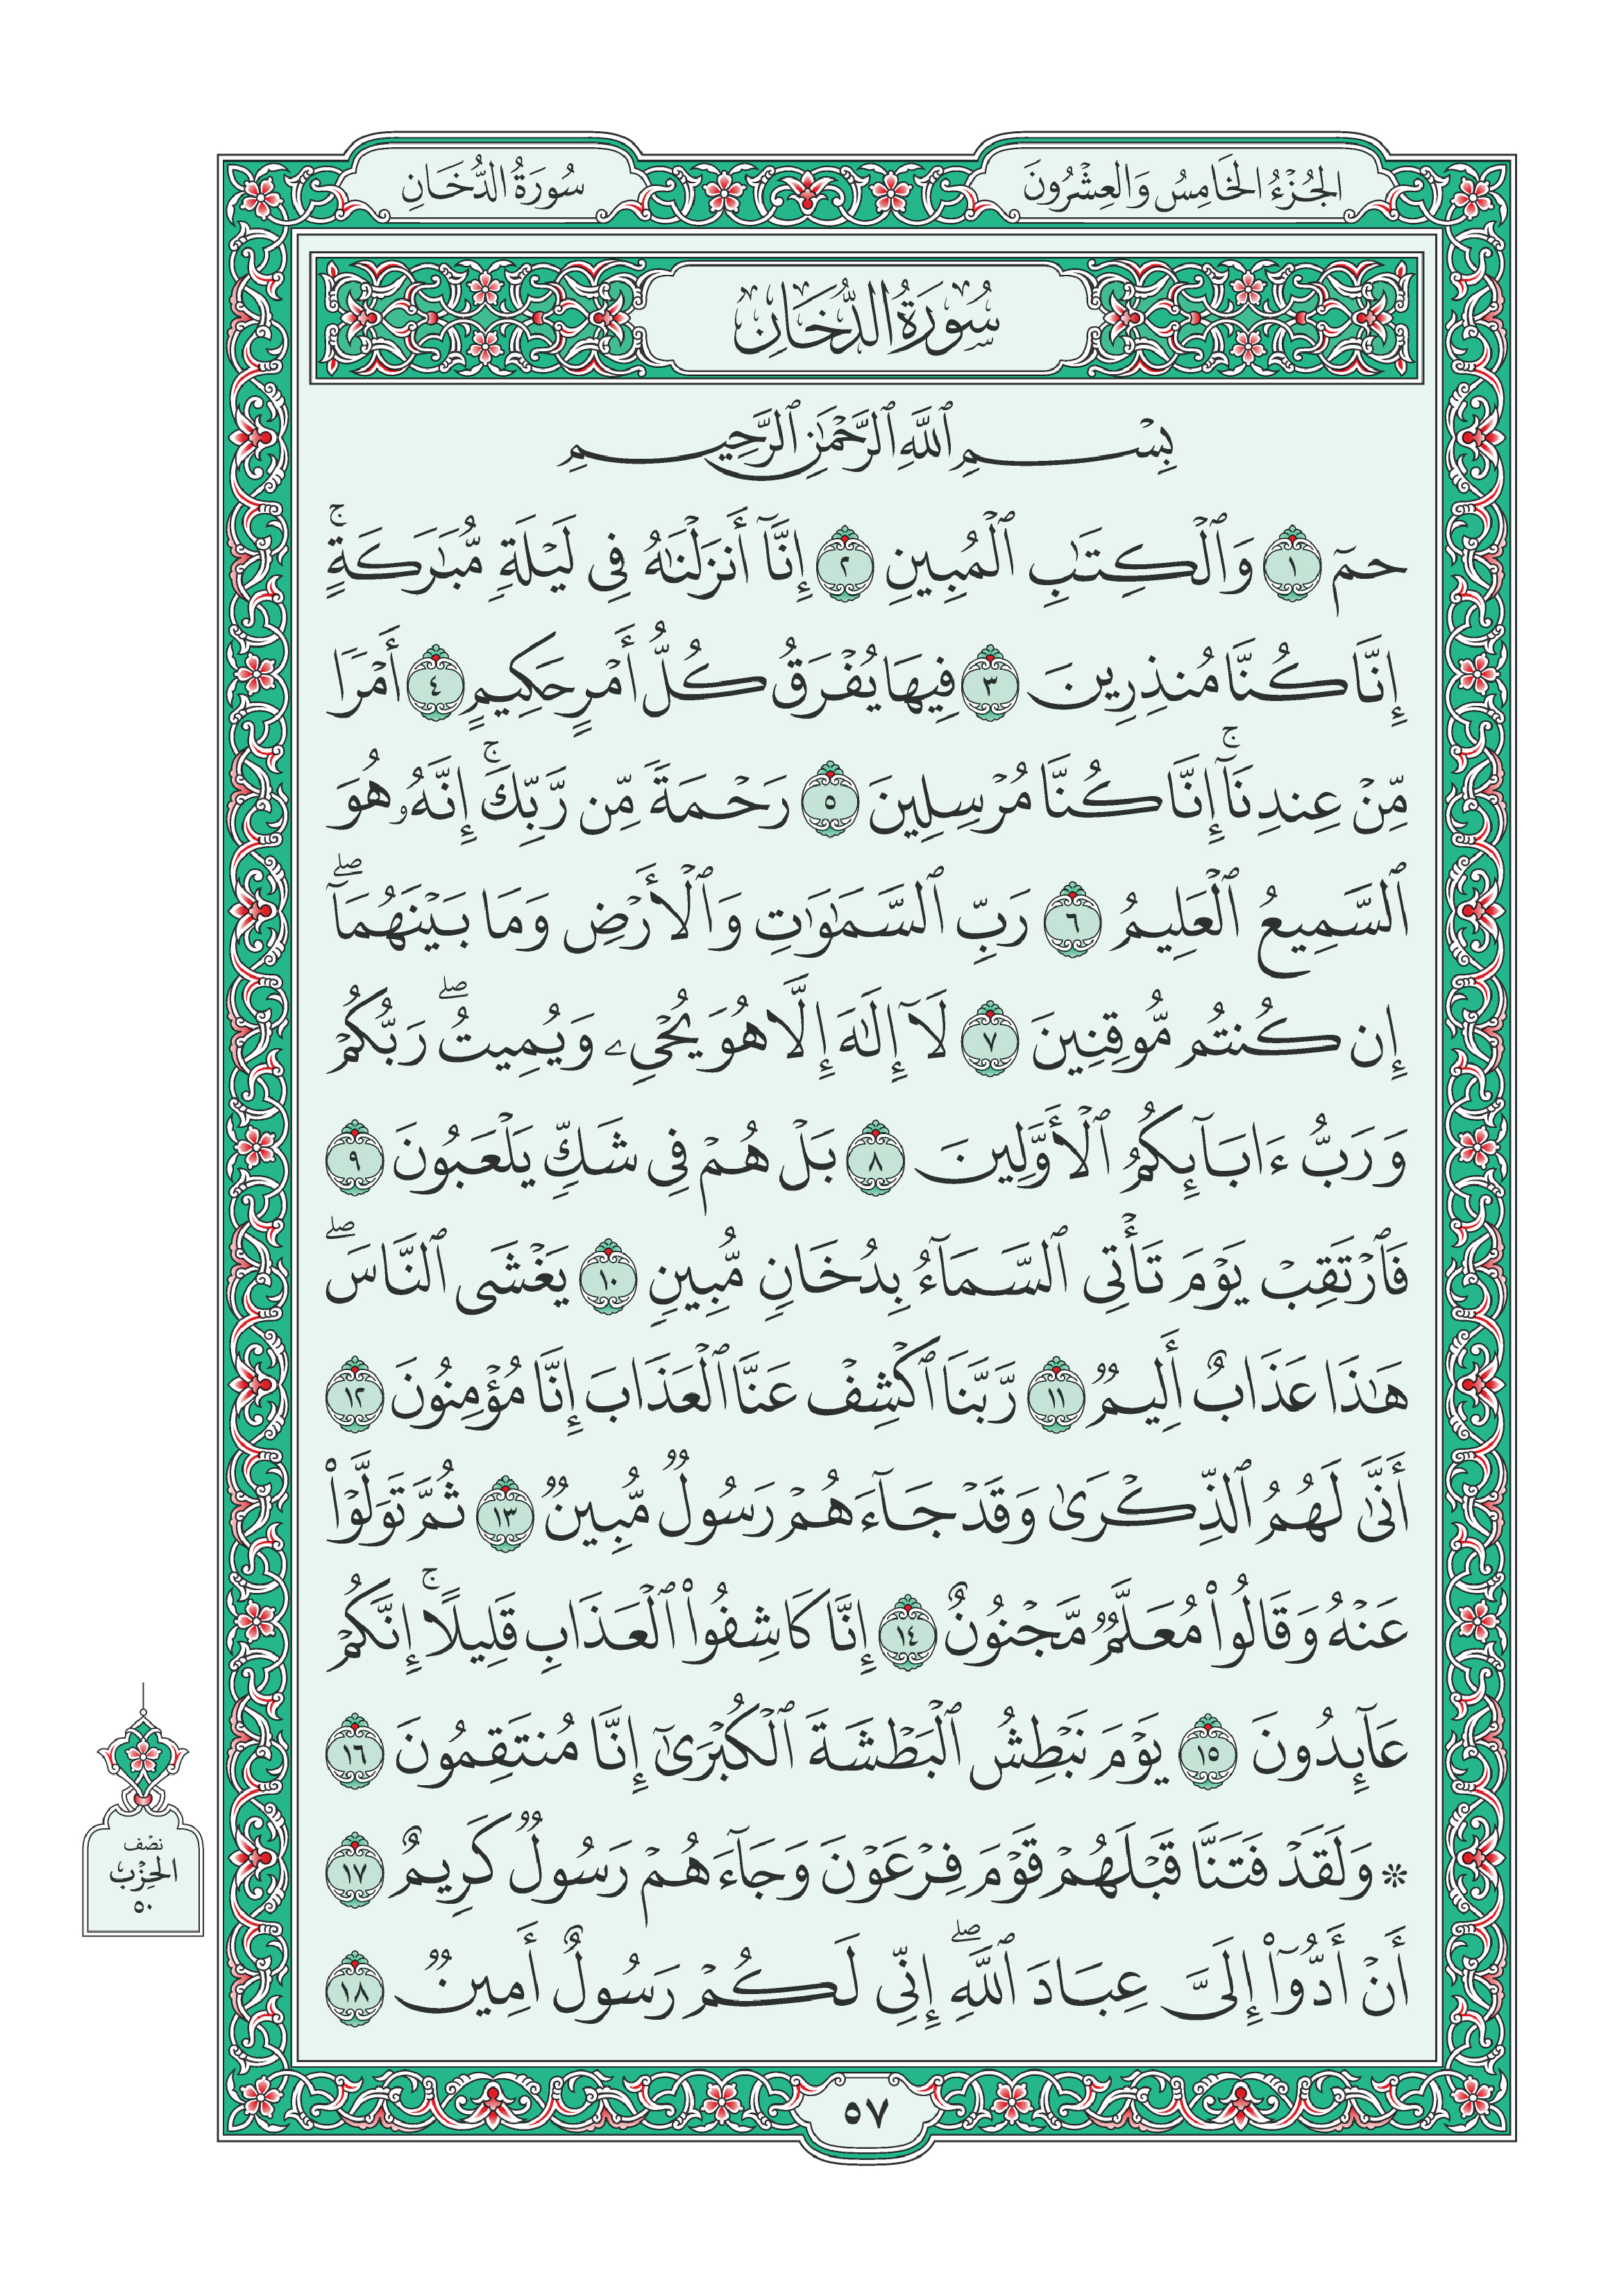 الجُزْءُ الخَامِسُ وَالعِشْرُونَ
سُورَةُ الدُّخَانِ
سُورَةُ الدُّخَانِ
بِسْمِ ٱللَّهِ ٱلرَّحْمَٰنِ ٱلرَّحِيمِ
حمٓ ١ وَٱلْكِتَٰبِ ٱلْمُبِينِ ٢ إِنَّآ أَنزَلْنَٰهُ فِى لَيْلَةٍ مُّبَٰرَكَةٍ ۚ
إِنَّا كُنَّا مُنذِرِينَ ٣ فِيهَا يُفْرَقُ كُلُّ أَمْرٍ حَكِيمٍ ٤ أَمْرًا
مِّنْ عِندِنَآ ۚ إِنَّا كُنَّا مُرْسِلِينَ ٥ رَحْمَةً مِّن رَّبِّكَ ۚ إِنَّهُۥ هُوَ
ٱلسَّمِيعُ ٱلْعَلِيمُ ٦ رَبِّ ٱلسَّمَٰوَٰتِ وَٱلْأَرْضِ وَمَا بَيْنَهُمَآ ۖ
إِن كُنتُم مُّوقِنِينَ ٧ لَآ إِلَٰهَ إِلَّا هُوَ يُحْىِۦ وَيُمِيتُ ۖ رَبُّكُمْ
وَرَبُّ ءَابَآئِكُمُ ٱلْأَوَّلِينَ ٨ بَلْ هُمْ فِى شَكٍّ يَلْعَبُونَ ٩
فَٱرْتَقِبْ يَوْمَ تَأْتِى ٱلسَّمَآءُ بِدُخَانٍ مُّبِينٍ ١٠ يَغْشَى ٱلنَّاسَ ۖ
هَٰذَا عَذَابٌ أَلِيمٌ ١١ رَّبَّنَا ٱكْشِفْ عَنَّا ٱلْعَذَابَ إِنَّا مُؤْمِنُونَ ١٢
أَنَّىٰ لَهُمُ ٱلذِّكْرَىٰ وَقَدْ جَآءَهُمْ رَسُولٌ مُّبِينٌ ١٣ ثُمَّ تَوَلَّوْا۟
عَنْهُ وَقَالُوا۟ مُعَلَّمٌ مَّجْنُونٌ ١٤ إِنَّا كَاشِفُوا۟ ٱلْعَذَابِ قَلِيلًا ۚ إِنَّكُمْ
عَآئِدُونَ ١٥ يَوْمَ نَبْطِشُ ٱلْبَطْشَةَ ٱلْكُبْرَىٰٓ إِنَّا مُنتَقِمُونَ ١٦
۞ وَلَقَدْ فَتَنَّا قَبْلَهُمْ قَوْمَ فِرْعَوْنَ وَجَآءَهُمْ رَسُولٌ كَرِيمٌ ١٧
أَنْ أَدُّوٓا۟ إِلَىَّ عِبَادَ ٱللَّهِ ۖ إِنِّى لَكُمْ رَسُولٌ أَمِينٌ ١٨
نصْف
الحِزْبِ
٥٠
٥٧